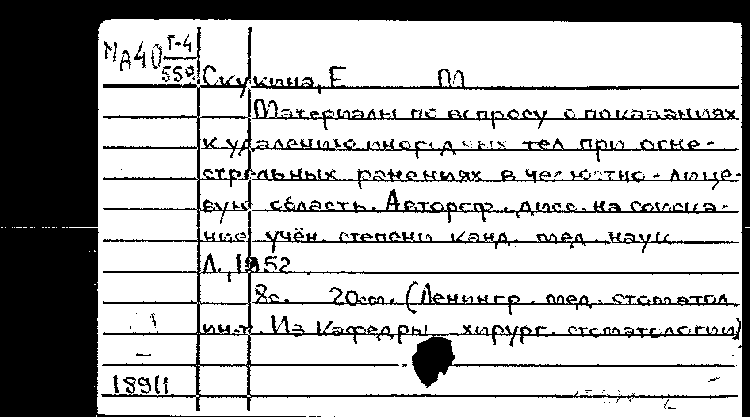 МА40 Г-4
559
Скукина, Е М
Материалы по вопросу о показаниях
к удалению инородных тел при огне-
стрельных ранениях в челюстно-лице-
вую область. Автореф. дисс. на соиска-
ние учён. степени канд. мед. наук
Л., 1952.
8с. 20см. (Ленингр. мед. стоматол.
ин-т. Из Кафедры хирург. стоматологии)
18911